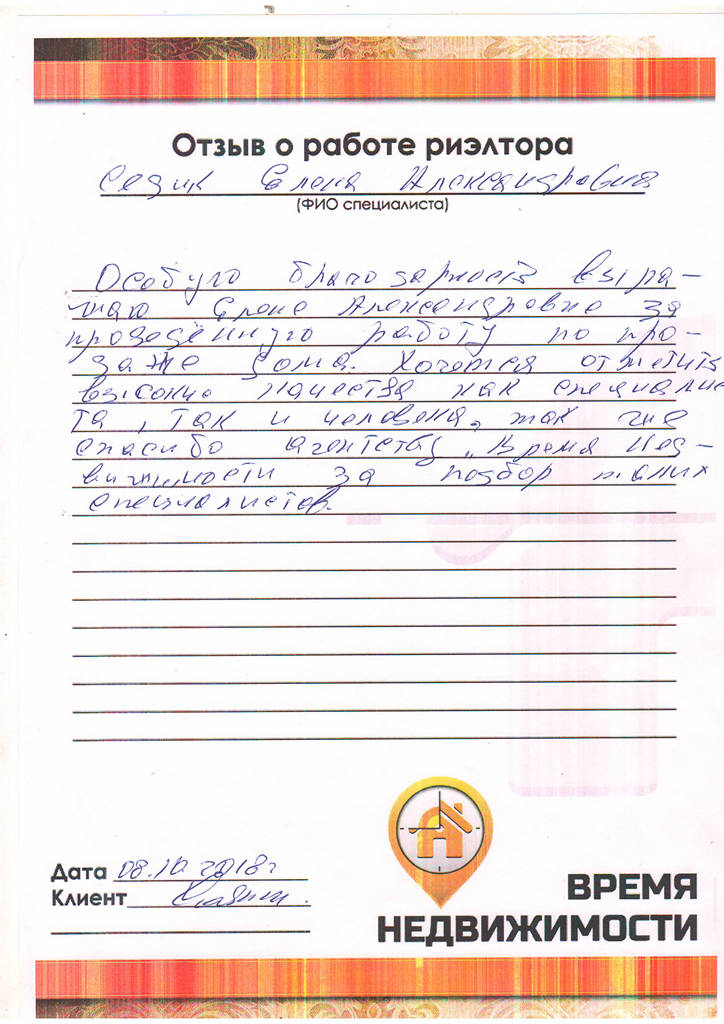 Отзыв о работе риэлтора
Седик Елена Александровна
(ФИО специалиста)
Особую благодарность выра-
жаю Елене Александровне за
проведенную работу по про-
даже дома. Хочется отметить
высокие качества как специалис
та, так и человека, так же
спасибо агентству „Время Нед-
вижимости за подбор таких
специалистов.
Дата 08.10 2018г
Клиент
ВРЕМЯ
НЕДВИЖИМОСТИ